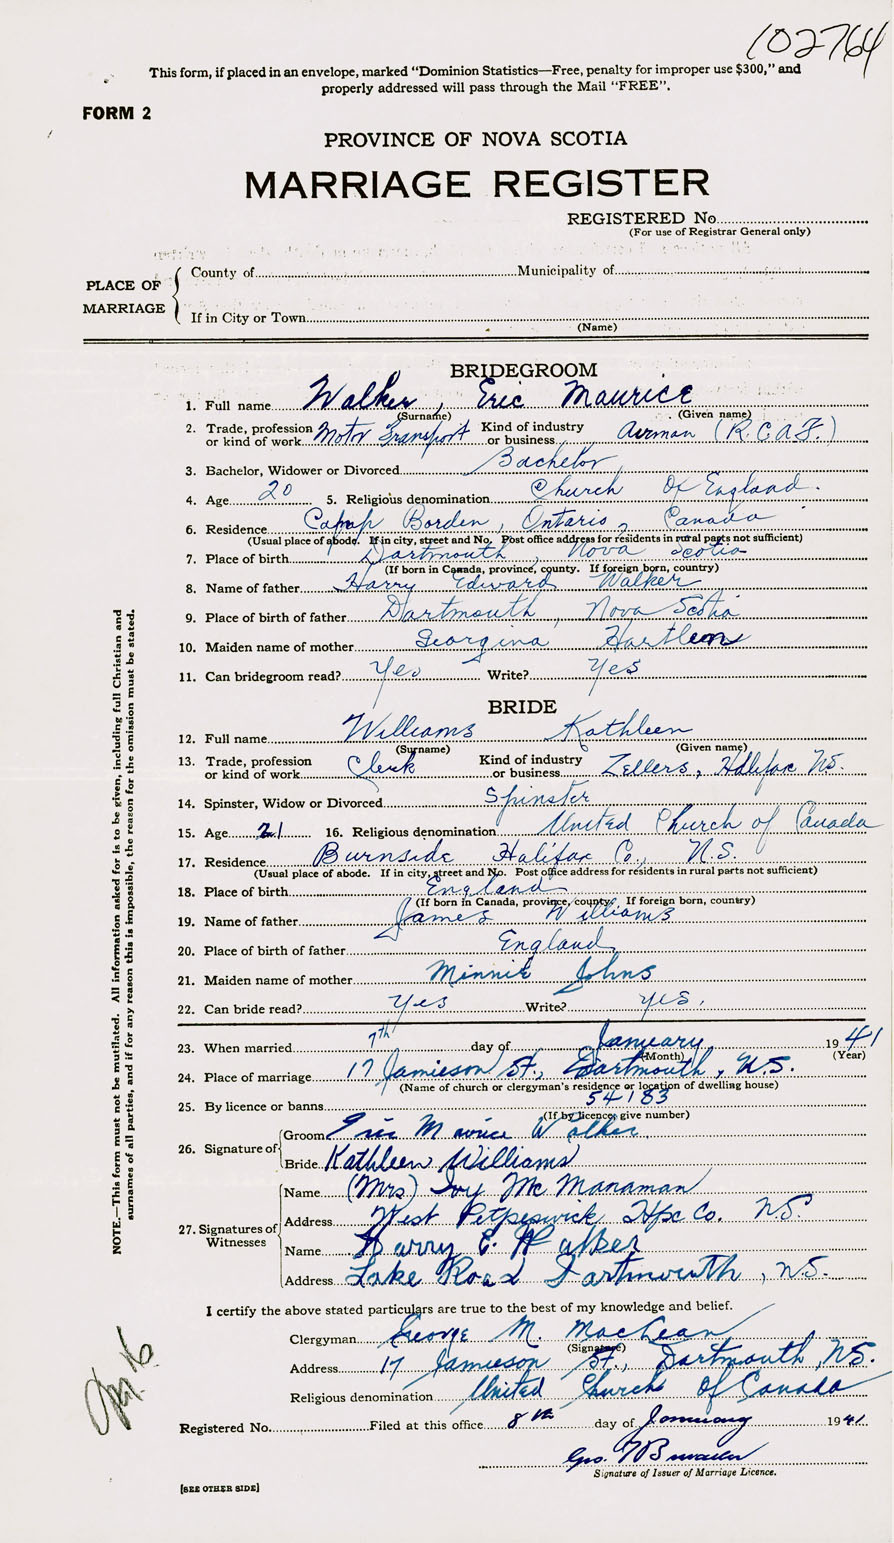 102764
This form, if placed in an envelope, marked "Dominion Statistics—Free, penalty for improper use $300," and
properly addressed will pass through the Mail "FREE".
FORM 2
PROVINCE OF NOVA SCOTIA
MARRIAGE REGISTER
REGISTERED No.
(For use of Registrar General only)
PLACE OF MARRIAGE
County of Municipality of
If in City or Town
(Name)
BRIDEGROOM
1. Full name Walker, Eric Maurice
(Surname) (Given name)
2. Trade, profession or kind of work Motor Transport Kind of industry or business Airman (R.C.A.F.)
3. Bachelor, Widower or Divorced Bachelor
4. Age 20 5. Religious denomination Church Of England.
6. Residence Camp Borden, Ontario, Canada
(Usual place of abode. If in city, street and No. Post office address for residents in rural parts not sufficient)
7. Place of birth Dartmouth, Nova Scotia
(If born in Canada, province, county. If foreign born, country)
8. Name of father Harry Edward Walker
9. Place of birth of father Dartmouth, Nova Scotia
10. Maiden name of mother Georgina Hartlen
11. Can bridegroom read? Yes Write? Yes
BRIDE
12. Full name Williams Kathleen
(Surname) (Given name)
13. Trade, profession or kind of work Clerk Kind of industry or business Zellers, Halifax NS.
14. Spinster, Widow or Divorced Spinster
15. Age 21 16. Religious denomination United Church of Canada
17. Residence Burnside Halifax Co., N.S.
(Usual place of abode. If in city, street and No. Post office address for residents in rural parts not sufficient)
18. Place of birth England
(If born in Canada, province, county. If foreign born, country)
19. Name of father James Williams
20. Place of birth of father England
21. Maiden name of mother Minnie Johns
22. Can bride read? Yes Write? yes.
23. When married 7th day of January 1941
(Month) (Year)
24. Place of marriage 17 Jamieson St., Dartmouth, N.S.
(Name of church or clergyman's residence or location of dwelling house)
25. By licence or banns 54183
(If by licence, give number)
26. Signature of
Groom Eric Maurice Walker
Bride Kathleen Williams
27. Signatures of Witnesses
Name (Mrs) Ivy McManaman
Address West Petpeswick Hfx Co. N.S.
Name Harry E. Walker
Address Lake Road Dartmouth, N.S.
I certify the above stated particulars are true to the best of my knowledge and belief.
Clergyman George M. MacLean
(Signature)
Address 17 Jamieson St., Dartmouth, N.S.
Religious denomination United Church Of Canada
Registered No. Filed at this office 8th day of January 1941
Geo.
Signature of Issuer of Marriage Licence.
[SEE OTHER SIDE]
NOTE.—This form must not be mutilated. All information asked for is to be given, including full Christian and
surnames of all parties, and if for any reason this is impossible, the reason for the omission must be stated.